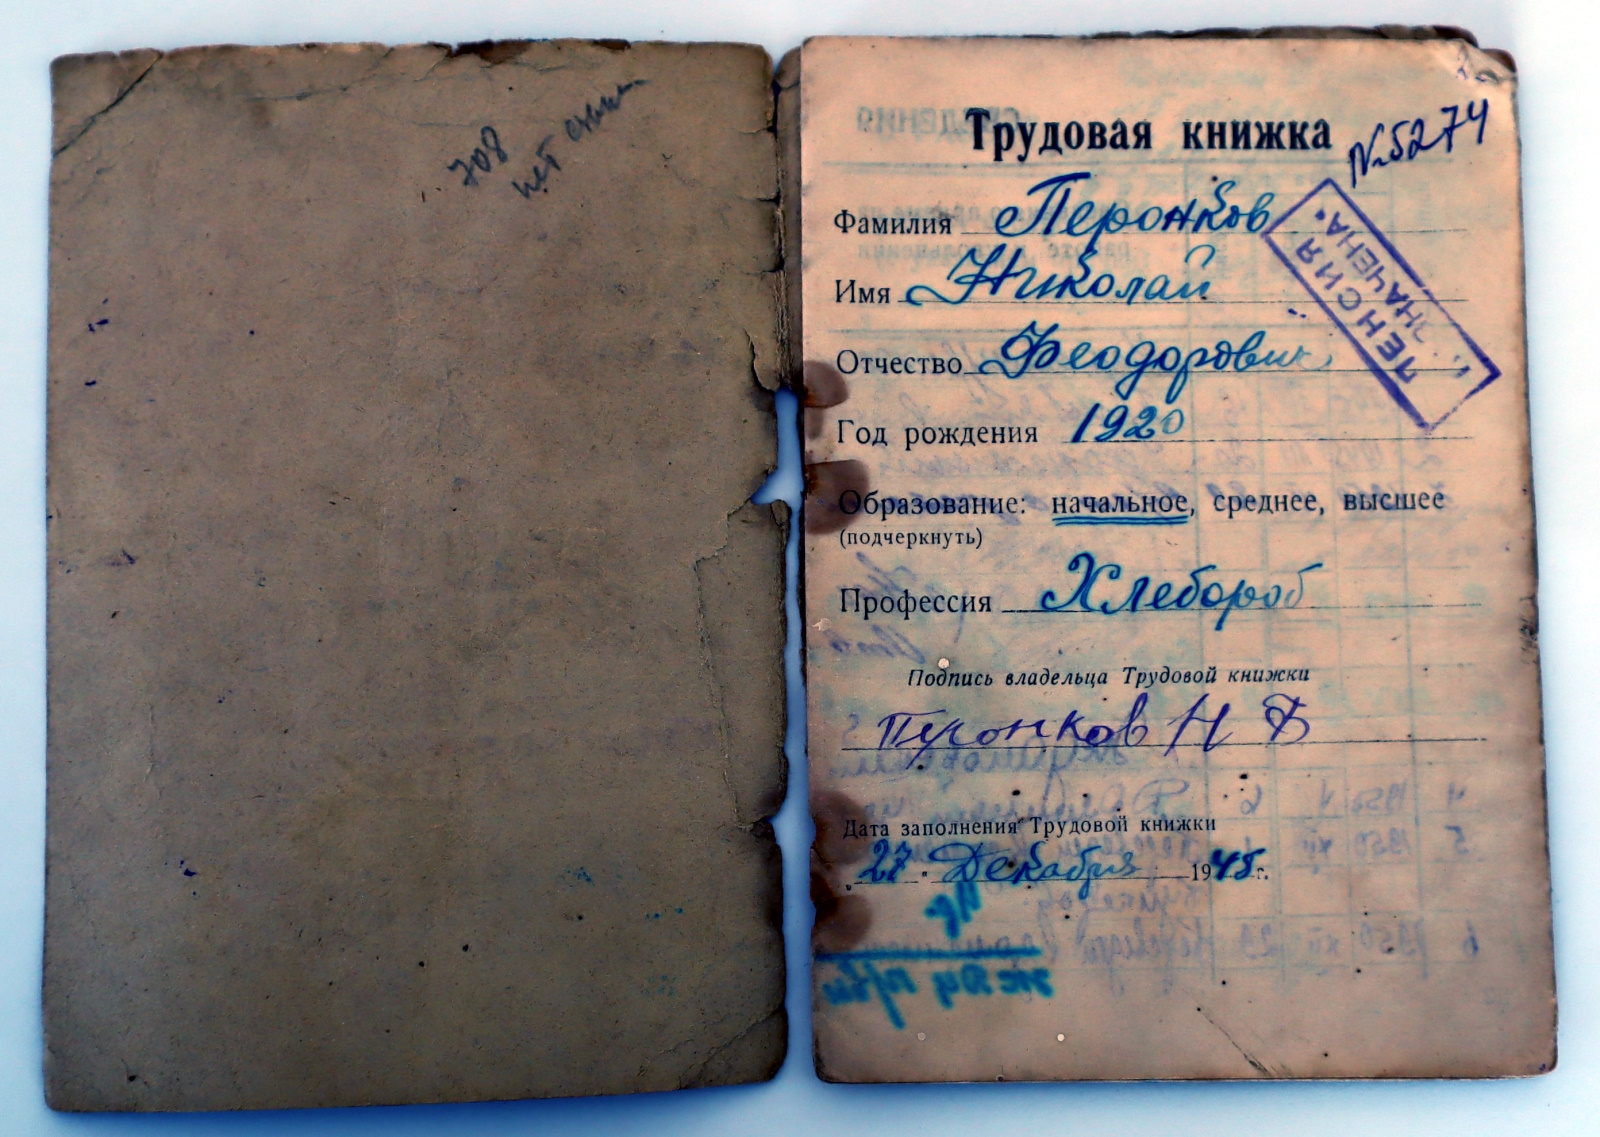 708
нет
Трудовая книжка
№5274
Фамилия Перонков
Имя Николай
Отчество Феодорович
ПЕНСИЯ
НАЗНАЧЕНА
Год рождения 1920
Образование: начальное, среднее, высшее
(подчеркнуть)
Профессия Хлебороб
Подпись владельца Трудовой книжки
Перонков Н Ф
Дата заполнения Трудовой книжки
„27“ Декабря 1945 г.